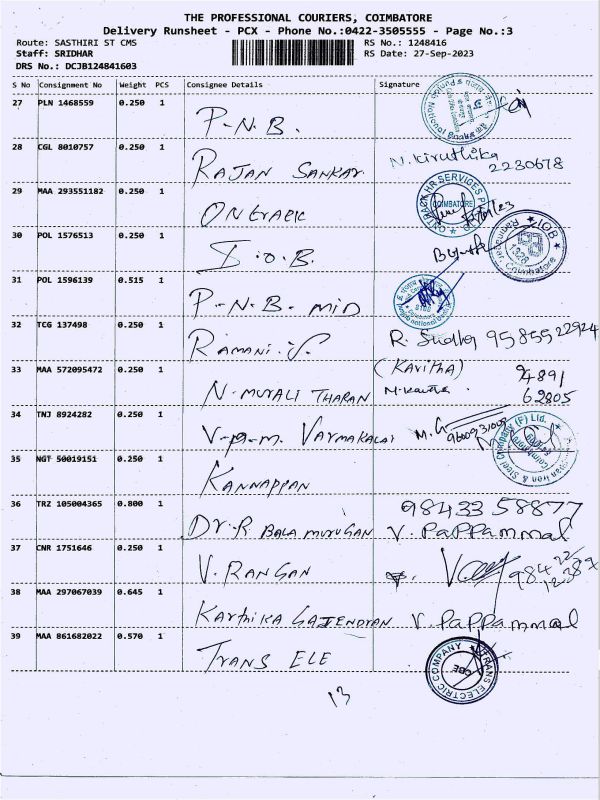 THE PROFESSIONAL COURIERS, COIMBATORE
Delivery Runsheet - PCX - Phone No.:0422-3505555 - Page No.:3
Route: SASTHIRI ST CMS RS No.: 1248416
Staff: SRIDHAR RS Date: 27-Sep-2023
DRS No.: DCJB124841603
S No Consignment No Weight PCS Consignee Details Signature
27 PLN 1468559 0.250 1 P-N.B.
28 CGL 8010757 0.250 1 RAJAN SANKAR N. Kiruthika
2230678
29 MAA 293551182 0.250 1 ONTRACK
30 POL 1576513 0.250 1 I.O.B.
31 POL 1596139 0.515 1 P-N-B-MID
32 TCG 137498 0.250 1 RAMANI.S. R. Sudha 9585522924
33 MAA 572095472 0.250 1 N-MURALI THARAN (KAVITHA)
94891
62805
34 TNJ 8924282 0.250 1 V-P-M. VARMAKALAI M.G.
35 NGT 50019151 0.250 1 KANNAPPAN
36 TRZ 105004365 0.800 1 DR-R BALA MURUGAN 98433 58877
V. Pappammal
37 CNR 1751646 0.250 1 V. RANGAN
38 MAA 297067039 0.645 1 KARTHIKA GAJENDRAN V. Pappammal
39 MAA 861682022 0.570 1 TRANS ELE TRANS ELECTRIC COMPANY CBE
13